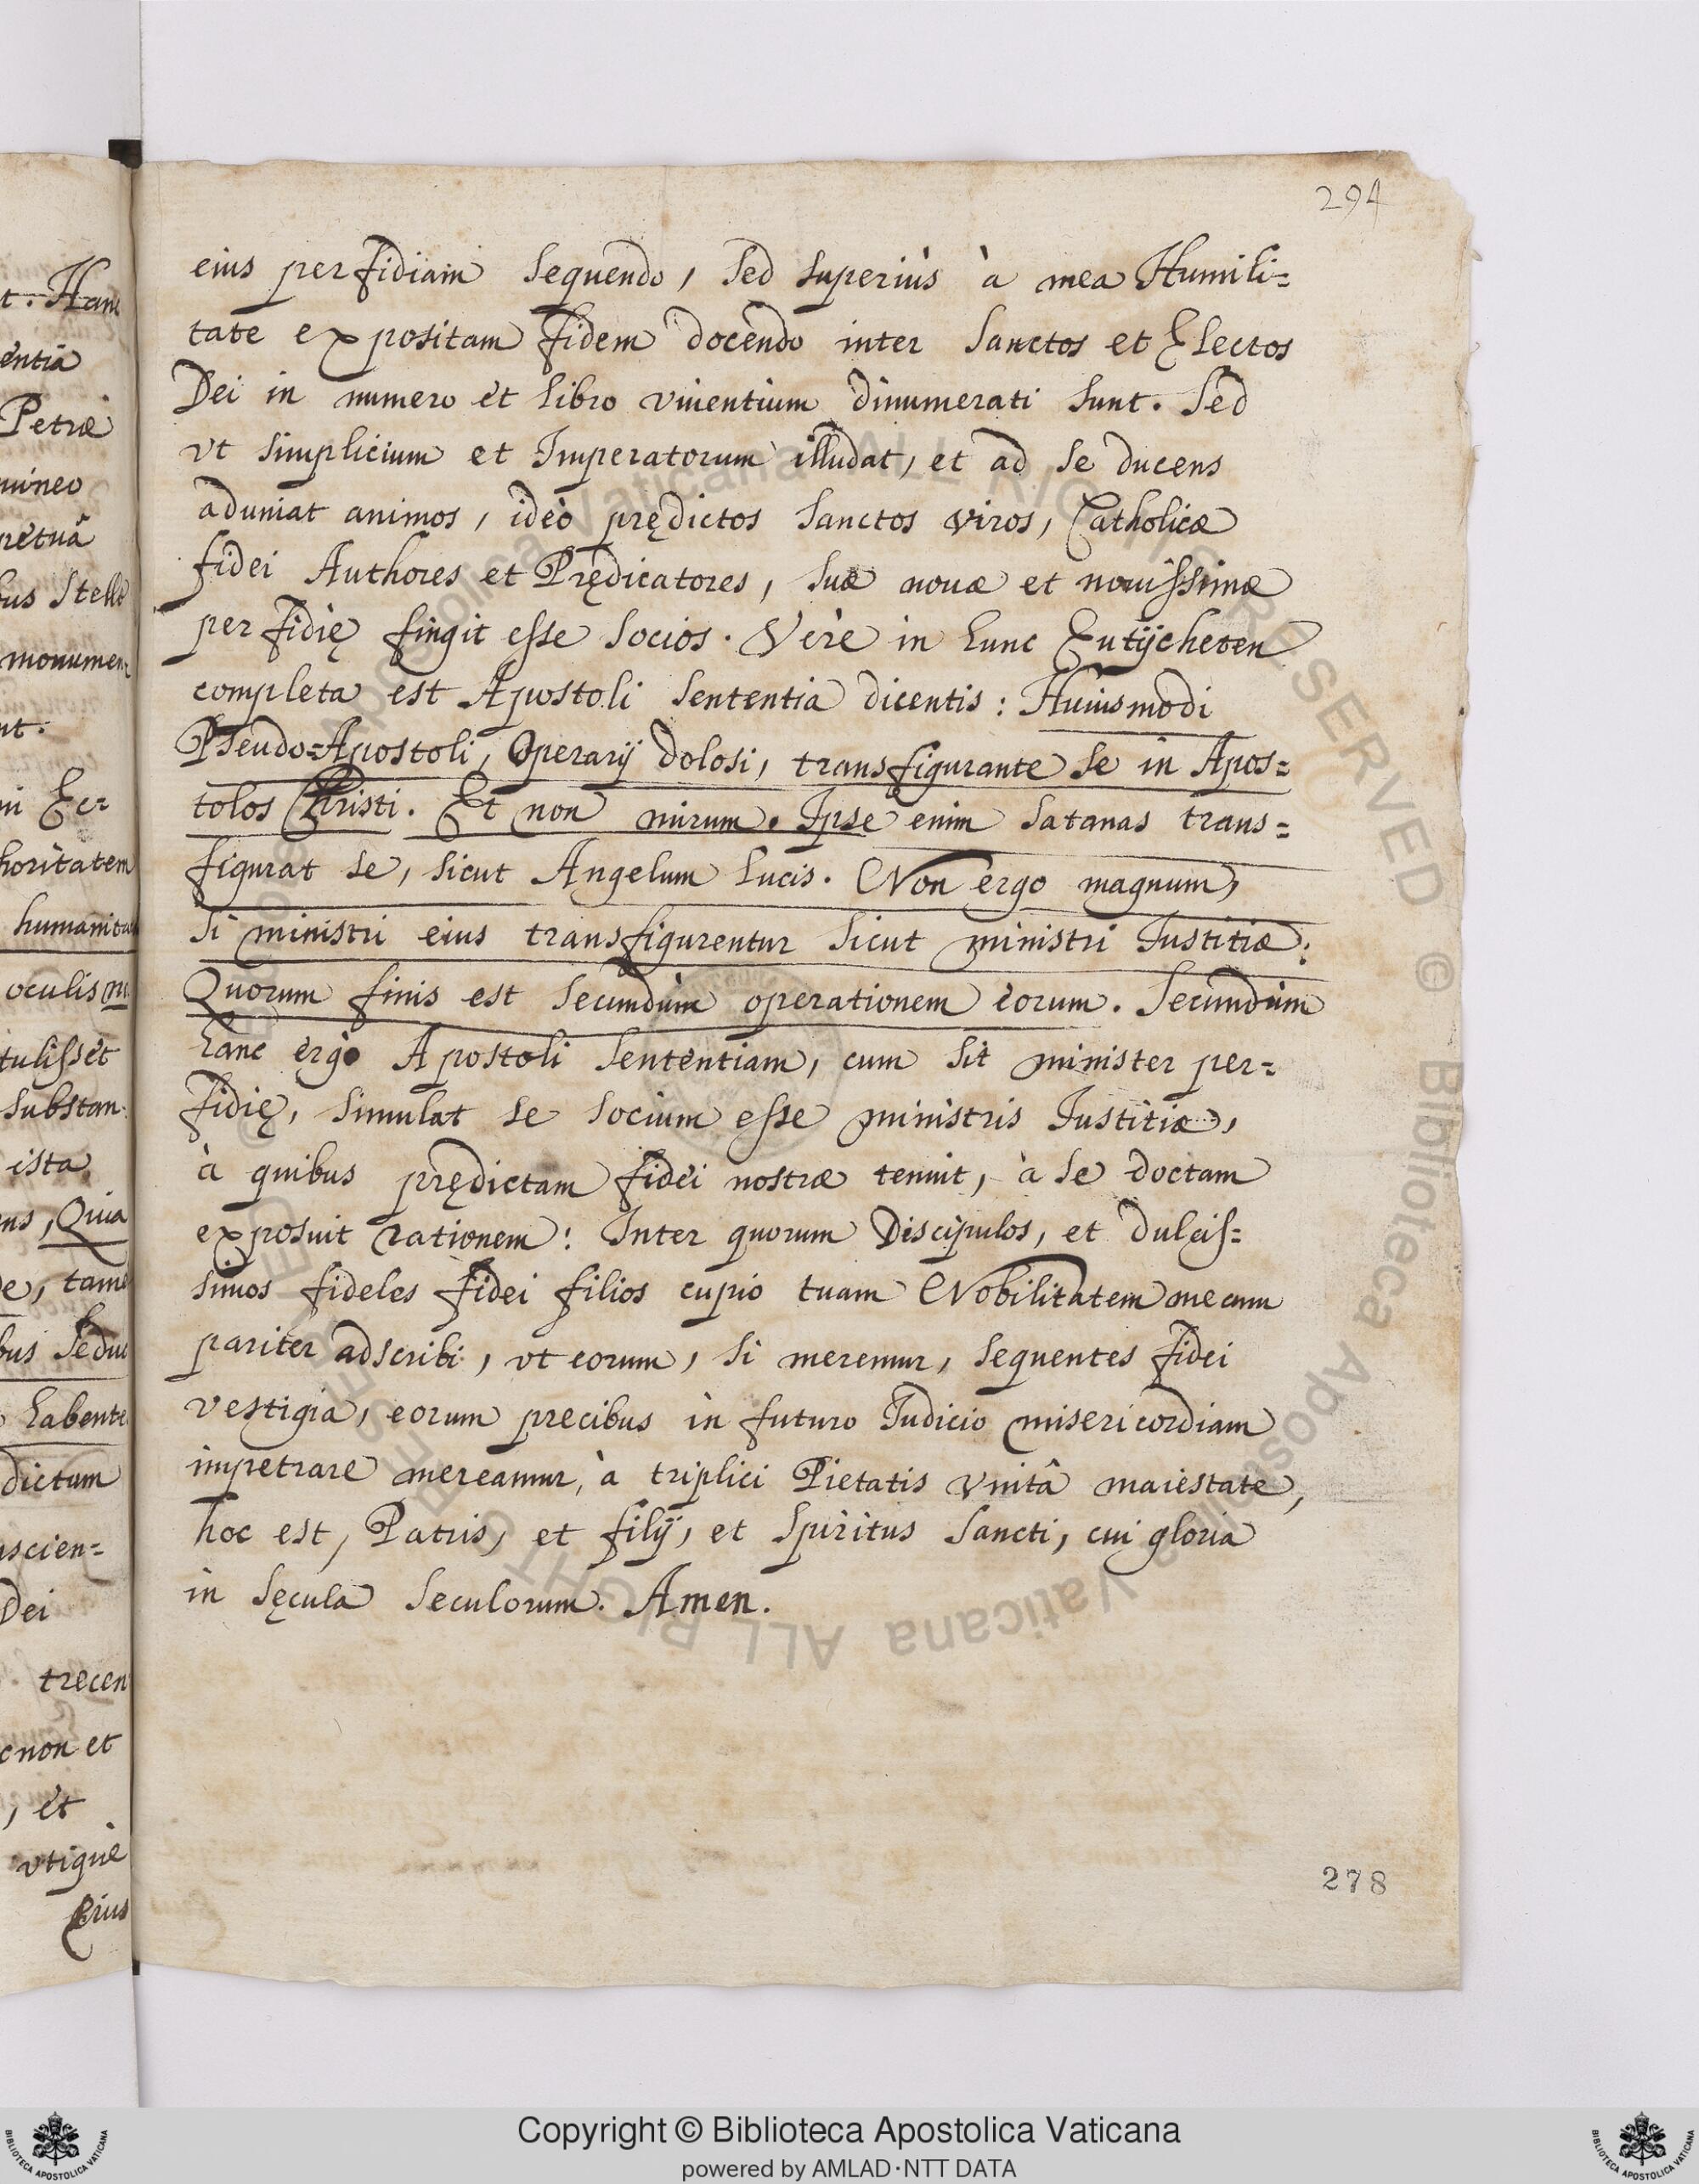 294
eius perfidiam sequendo, sed superiùs à mea Humili=
tate expositam fidem docendo inter Sanctos et Electos
Dei in numero et libro viuentium dinumerati sunt. Sed
vt simplicium et Imperatorum illudat, et ad se ducens
aduniat animos, ideò prędictos Sanctos viros, Catholicæ
fidei Authores et Prędicatores, suæ nouæ et nouissimæ
perfidię fingit esse socios. Verè in hunc Eutijcheten
completa est Apostoli sententia dicentis: Huiusmodi
Pseudo=Apostoli, Operarij dolosi, transfigurante se in Apos=
tolos Christi. Et non mirum. Ipse enim Satanas trans=
figurat se, sicut Angelum lucis. Non ergo magnum,
si ministri eius transfigurentur sicut ministri Iustitiæ:
Quorum finis est secundùm operationem eorum. Secundùm
hanc ergo Apostoli sententiam, cum sit minister per=
fidię, simulat se socium esse ministris Iustitiæ,
à quibus prędictam fidei nostræ tenuit, à se doctam
exposuit rationem: Inter quorum Discipulos, et dulcis=
simos fideles fidei filios cupio tuam Nobilitatem mecum
pariter adscribi, vt eorum, si meremur, sequentes fidei
vestigia, eorum precibus in futuro Iudicio misericordiam
impetrare mereamur, à triplici Pietatis vnitâ maiestate,
hoc est, Patris, et filij, et Spiritus Sancti, cui gloria
in sęcula seculorum. Amen.
278
t. Hanc
entia
Petræ
mineo
petuâ
bus Stellę
monumen=
nt.
ni Ec=
horitatem
humanita
oculis
tulisset
substan
ista
ens, Quia
de, tamen
bus sedu
habente
dictum
scien=
Dei
trecen
cnon et
, et
vtique
eius
© Biblioteca Apostolica Vaticana ALL RIGHTS RESERVED © Biblioteca Apostolica Vaticana ALL RIGHT
Copyright © Biblioteca Apostolica Vaticana
powered by AMLAD·NTT DATA
BIBLIOTECA APOSTOLICA VATICANA
BIBLIOTECA APOSTOLICA VATICANA